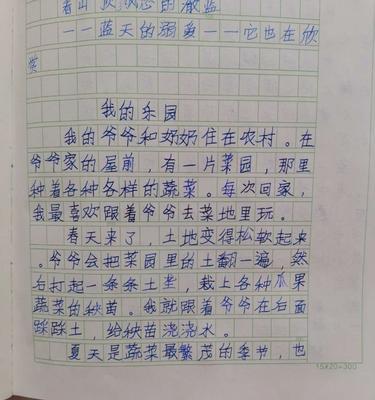 ——蓝天的溺爱——它也在欣
赏
我的乐园
我的爷爷和奶奶住在农村。在
爷爷家的屋前，有一片菜园，那里
种着各种各样的蔬菜。每次回家，
我最喜欢跟着爷爷去菜地里玩。
春天来了，土地变得松软起来
。爷爷会把菜园里的土翻一遍，然
后打起一条条土垄，栽上各种瓜果
蔬菜的秧苗。我就跟着爷爷在后面
踩踩土，给秧苗浇浇水。
夏天是蔬菜最繁茂的季节，也
15X20=300